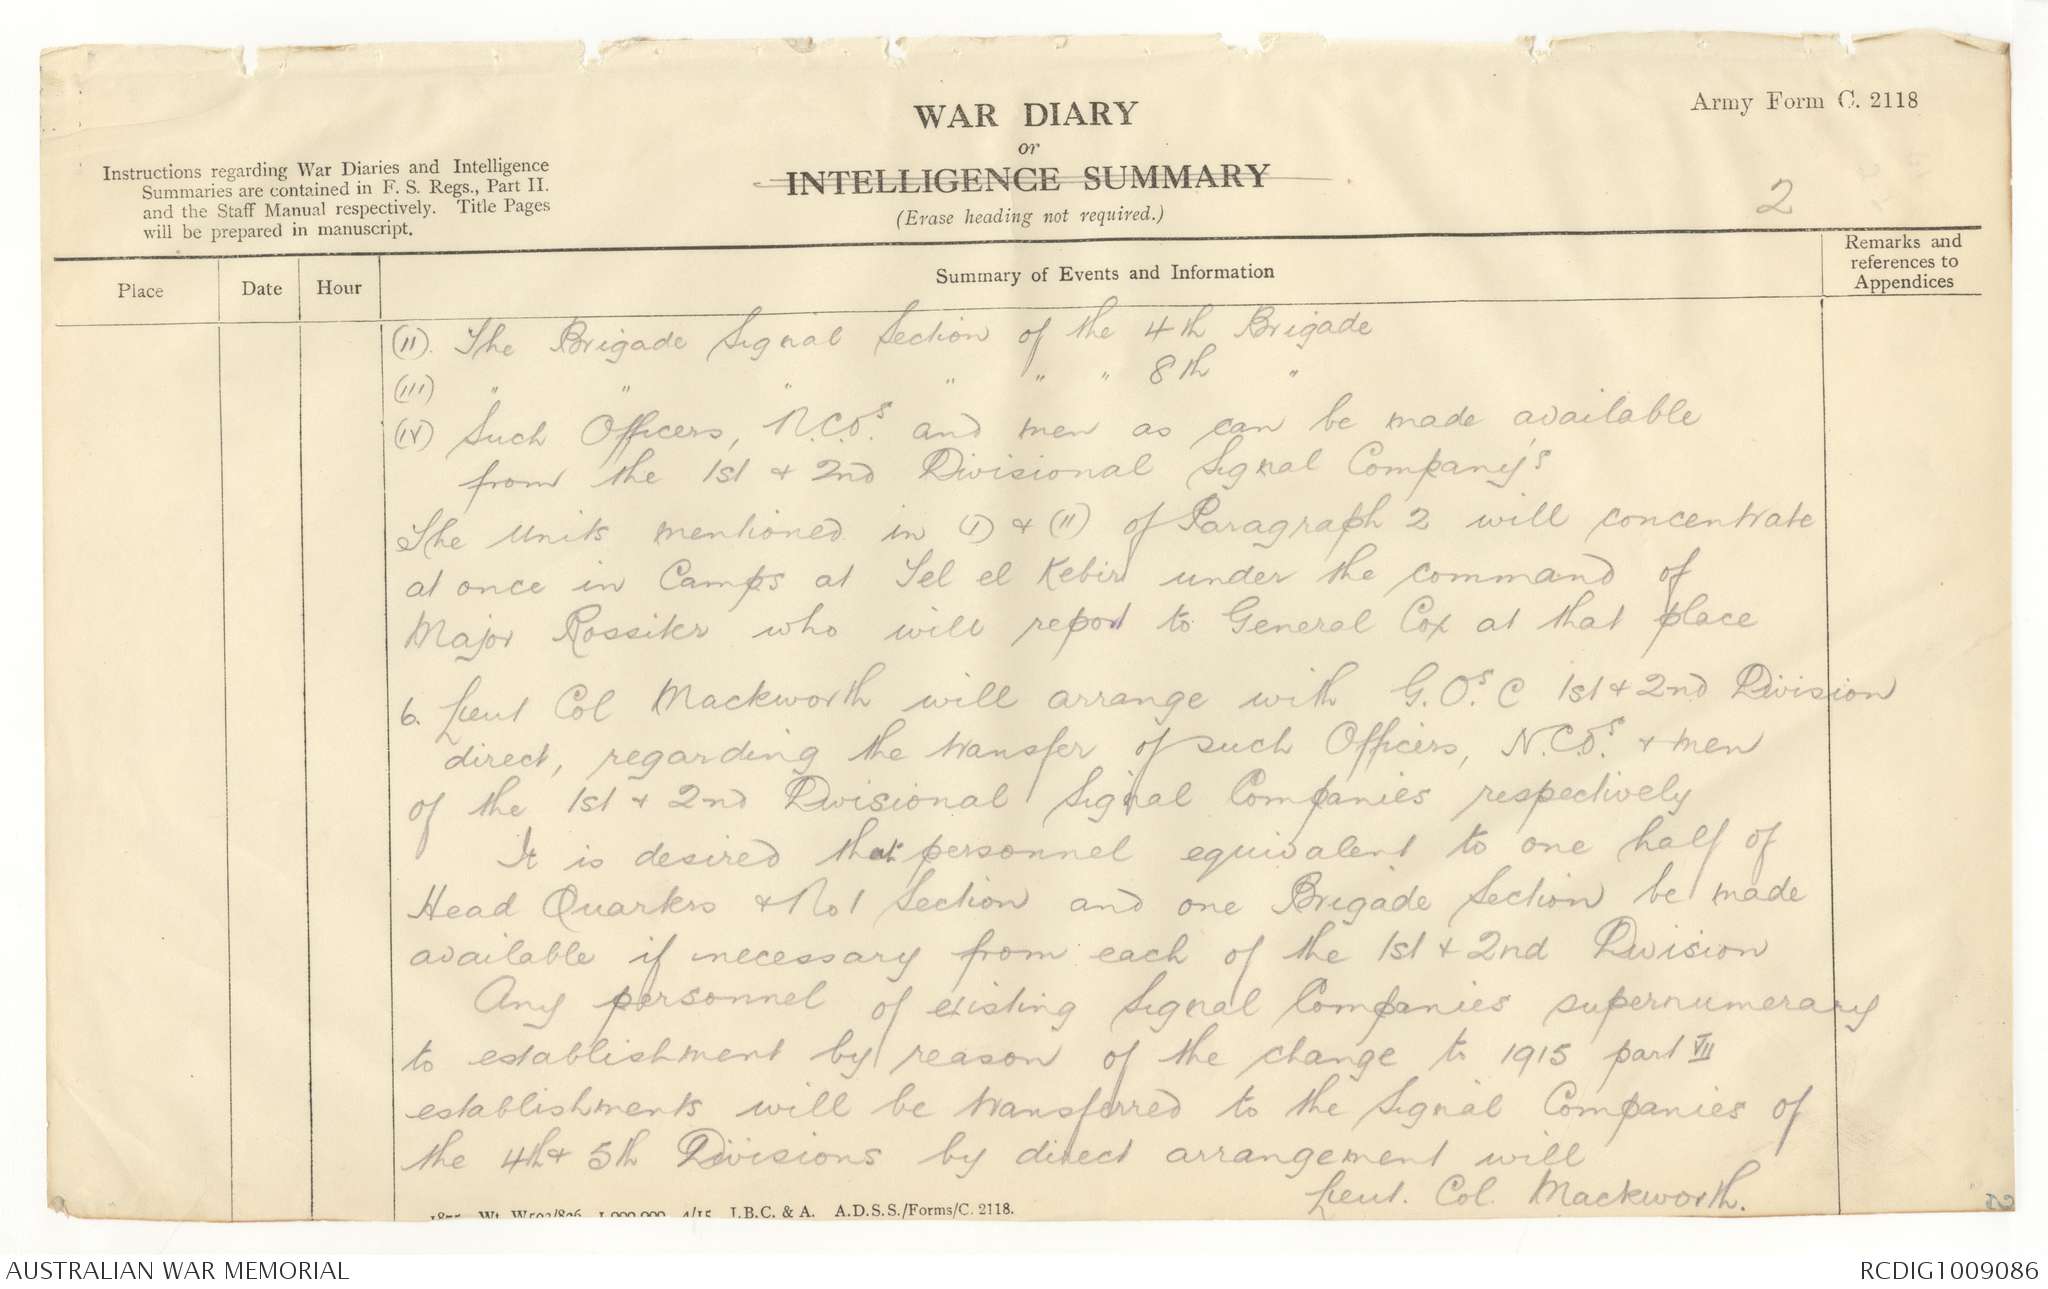 WAR DIARY
or
INTELLIGENCE SUMMARY
(Erase heading not required.)
Army Form C. 2118
Instructions regarding War Diaries and Intelligence
Summaries are contained in F. S. Regs., Part II.
and the Staff Manual respectively. Title Pages
will be prepared in manuscript.
2
Place
Date
Hour
Summary of Events and Information
Remarks and
references to
Appendices
(II). The Brigade Signal Section of the 4th Brigade
(III) " " " " " " 8th "
(IV) Such Officers, N.C.Os. and men as can be made available
from the 1st & 2nd Divisional Signal Company's
The units mentioned in (I) & (II) of Paragraph 2 will concentrate
at once in Camps at Tel el Kebir under the command of
Major Rossiter who will report to General Cox at that place
6. Lieut Col Mackworth will arrange with G.Os.C 1st & 2nd Division
direct, regarding the transfer of such Officers, N.C.Os. & men
of the 1st & 2nd Divisional Signal Companies respectively
It is desired that personnel equivalent to one half of
Head Quarters & No 1 Section and one Brigade Section be made
available if necessary from each of the 1st & 2nd Division
Any personnel of existing Signal Companies supernumerary
to establishment by reason of the change to 1915 part VII
establishments will be transferred to the Signal Companies of
the 4th & 5th Divisions by direct arrangement will
Lieut. Col. Mackworth.
1875 Wt. W593/826 1,000,000 4/15 J.B.C. & A. A.D.S.S./Forms/C. 2118.
AUSTRALIAN WAR MEMORIAL
RCDIG1009086